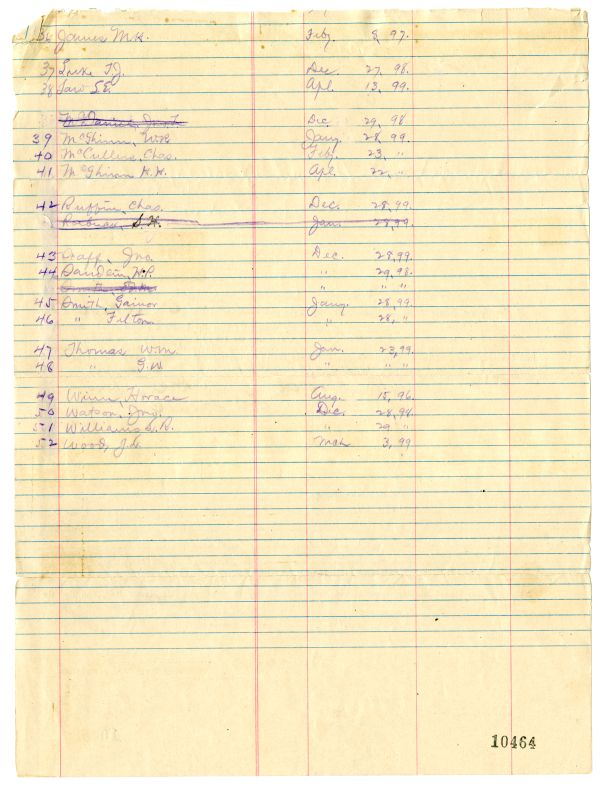 36 James M.H. Feby. 8, 97.
37 Luke T.J. Dec. 27, 98.
38 Law S.E. Apl. 13, 99.
McDaniel, Dec. 29, 98
39 McGhinn, Jany. 28, 99.
40 McCullers, Chas. Feby. 23, "
41 McGhinn H.H. Apl. 22, "
42 Ruffin, Chas. Dec. 28, 99.
S.H. Jan. 28, 99.
43 Jno. Dec. 28, 99.
44 " 29, 98.
" " "
45 Smith, Gainor Jany. 28, 99
46 " Filton " 28, "
47 Thomas Wm. Jan. 23, 99.
48 " G.W. " " "
49 Winn, Horace Aug. 15, 96.
50 Watson, Jno. Dec. 28, 98.
51 Williams, R. " 29 "
52 Wood, J. Mch 3, 99
10464